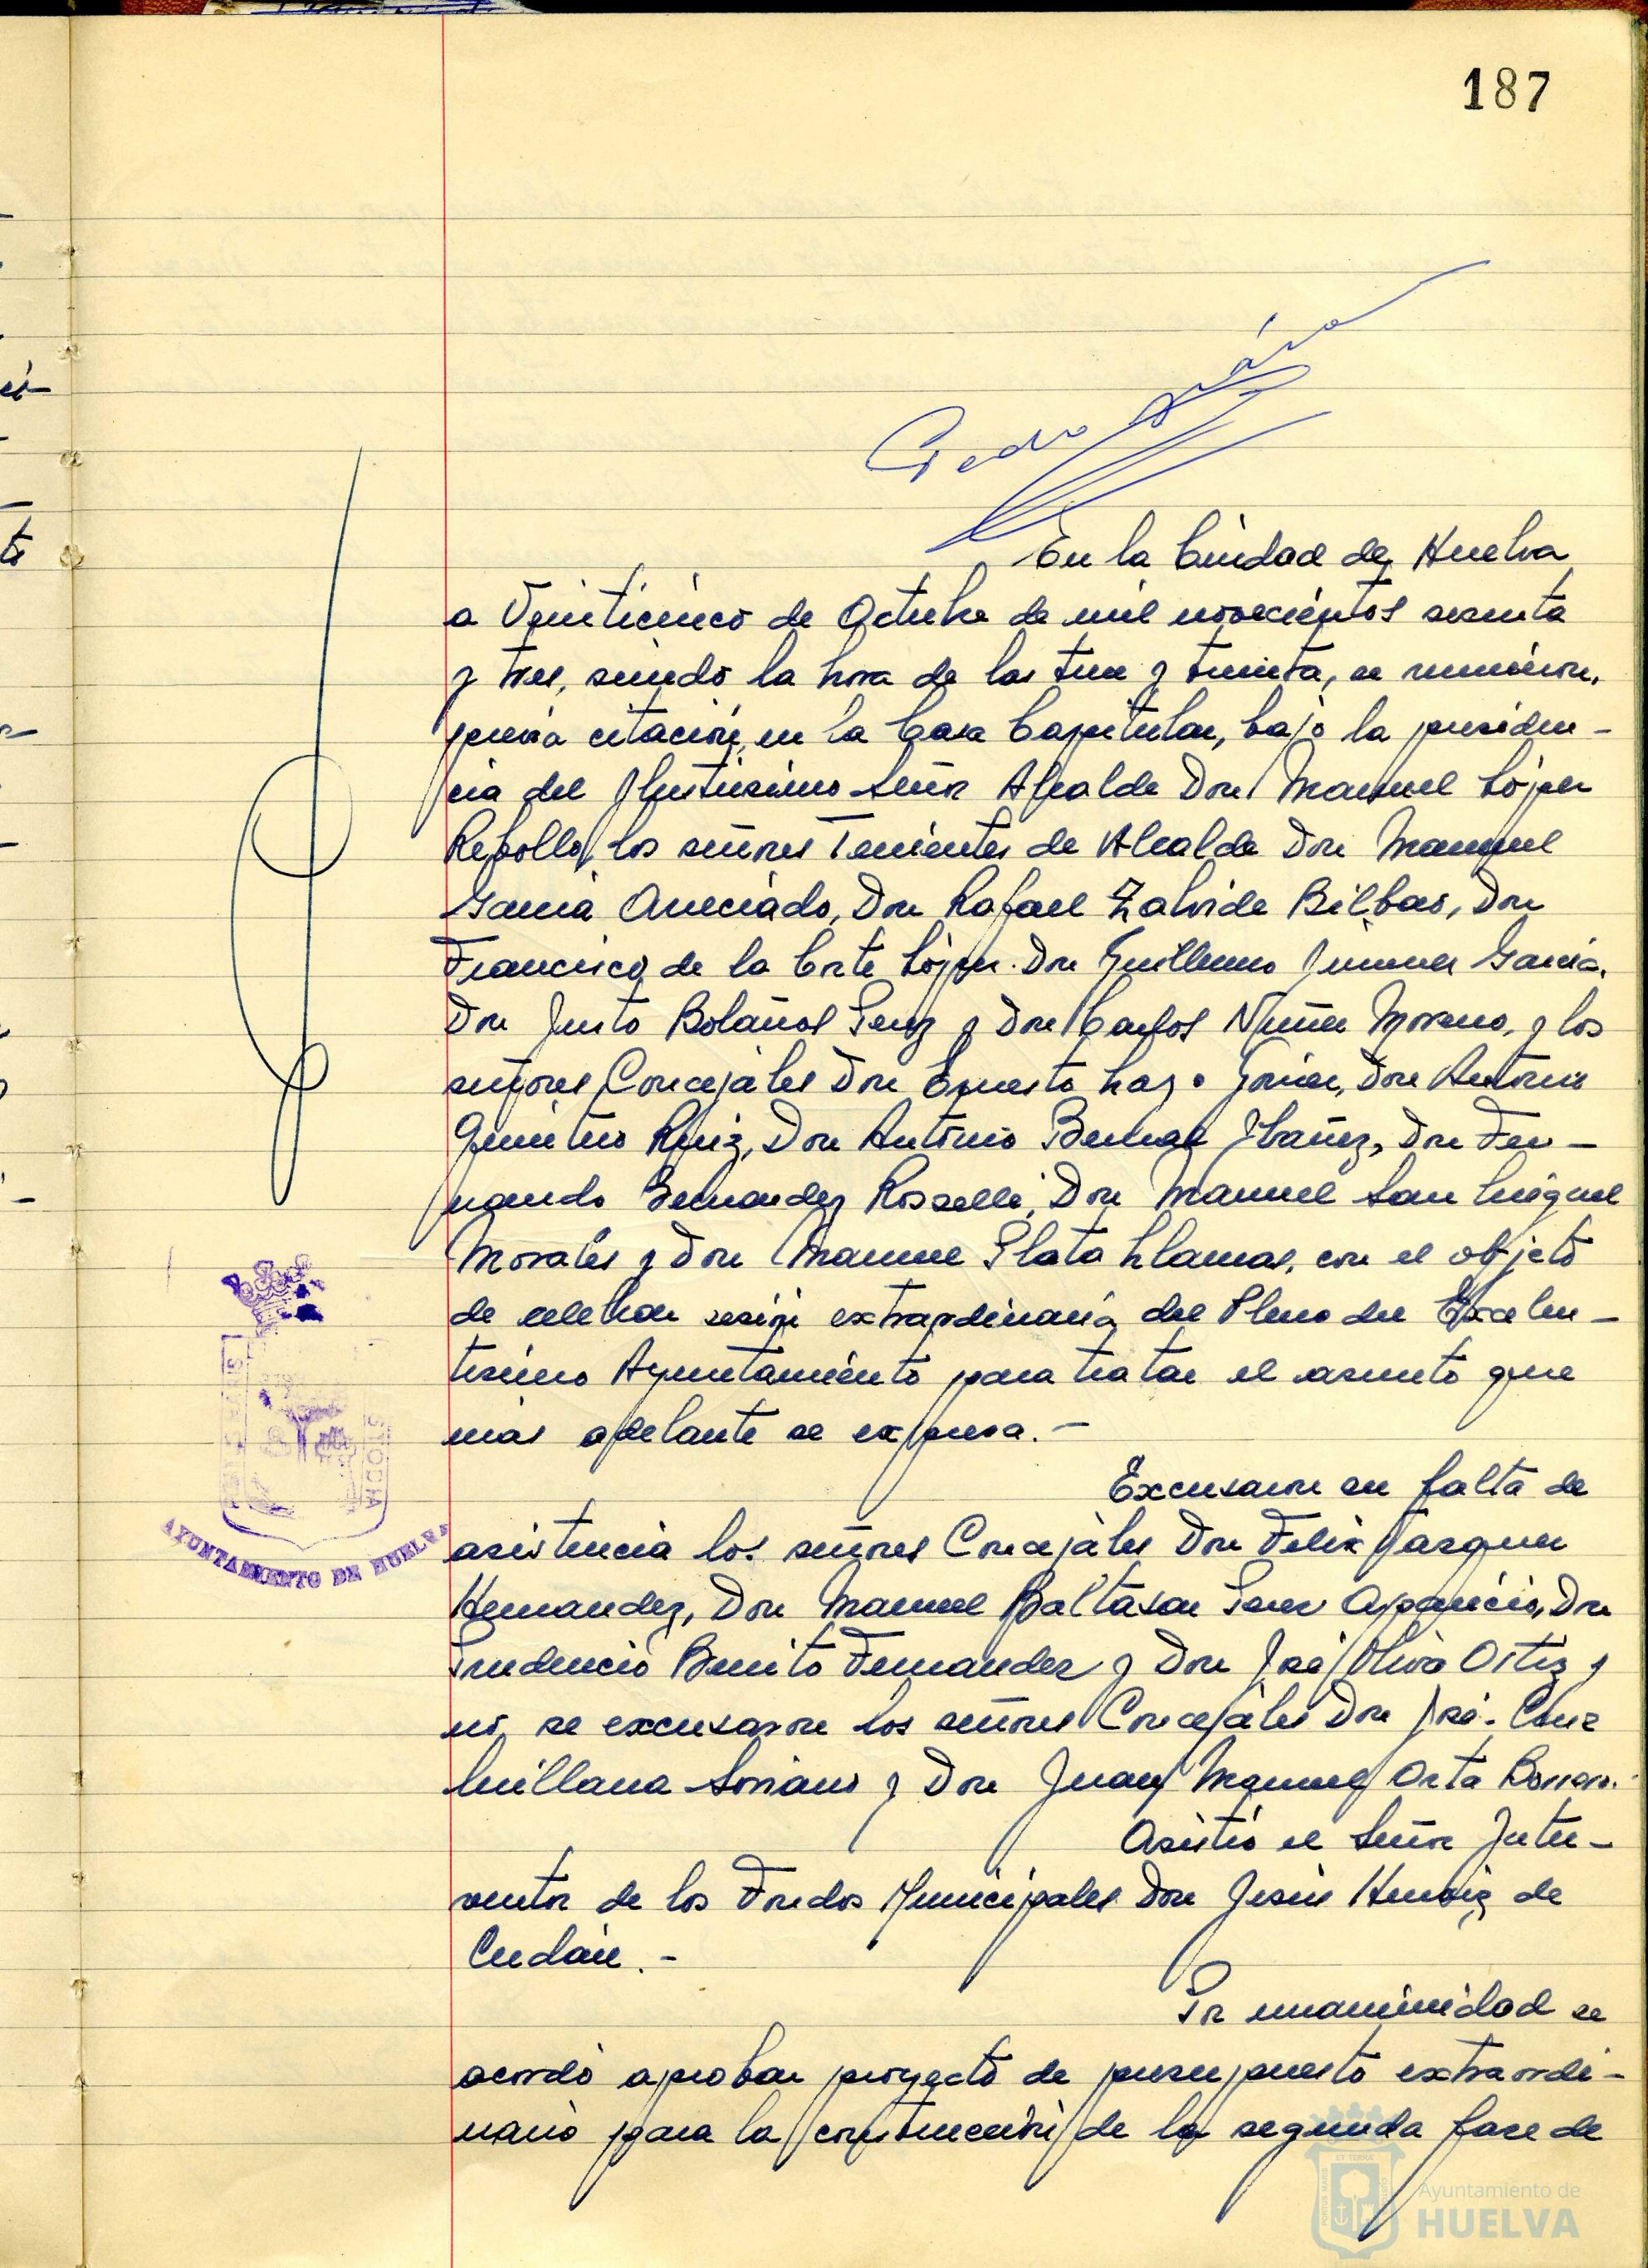 187
Pedro
En la Ciudad de Huelva
a Veinticinco de Octubre de mil novecientos sesenta
y tres, siendo la hora de las trece y treinta, se reunieron,
previa citación, en la Casa Capitular, bajo la presiden-
cia del Ilustrisimo Señor Alcalde Don Manuel López
Rebollo, los señores Tenientes de Alcalde Don Manuel
Garcia Aneciado, Don Rafael Zalvide Bilbao, Don
Francisco de la Corte López. Don Guillermo Jimenez Garcia,
Don Justo Bolaños Perez y Don Carlos Nuñez Moreno, y los
señores Concejales Don Ernesto Lazo Gomez, Don Antonio
Quintero Ruiz, Don Antonio Bernal Ibañez, Don Fer-
nando Bernandez Rosselli, Don Manuel San Miguel
Morales y Don Manuel Plata Llamas, con el objeto
de celebrar sesión extraordinaria del Pleno del Excelen-
tisimo Ayuntamiento para tratar el asunto que
más adelante se expresa.-
Excusaron su falta de
asistencia los señores Concejales Don Felix Vazquez
Hernandez, Don Manuel Baltasar Perez Aparicio, Don
Prudencio Benito Fernandez y Don José Oliva Ortiz y
no se excusaron los señores Concejales Don José-Cruz
Millana Soriano y Don Juan Manuel Orta Borrero.
Asistió el Señor Inter-
ventor de los Fondos Municipales Don Jesús Hervoiz de
Cudain.-
Por unanimidad se
acordó aprobar proyecto de presupuesto extraordi-
nario para la construcción de la segunda fase de
AYUNTAMIENTO DE HUELVA
Ayuntamiento de
HUELVA